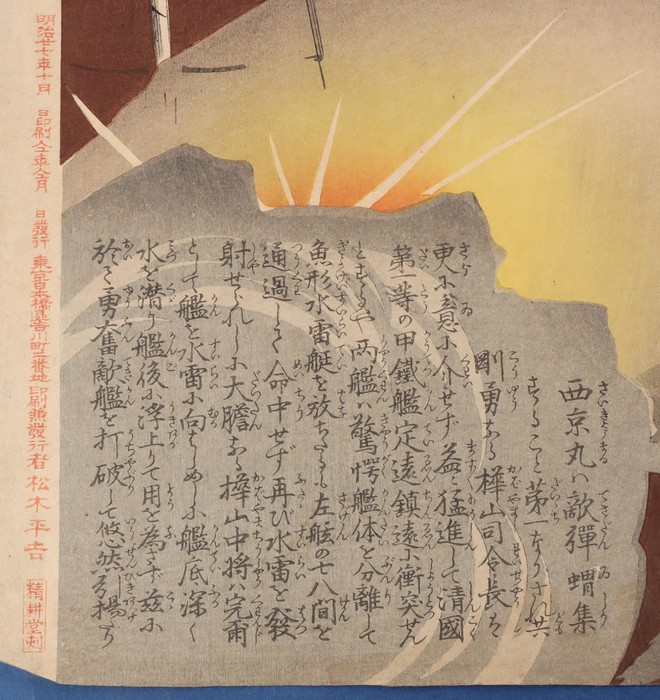 西京丸ハ敵彈蝟集
すること第一なりされ共
剛勇なる樺山司令長は
更に意に介せず益々猛進して清國
第一等の甲鐵艦定遠鎮遠に衝突せん
とするや両艦ハ驚愕艦体を分離して
魚形水雷艇を放ちたるも左舷の七八間を
通過して命中せず再び水雷を發
射せられしに大膽なる樺山中将ハ完爾
として艦を水雷に向わしめしに艦底深く
水を潜り艦後に浮上りて用を為さず茲に
於て勇奮敵艦を打破して悠然引揚たり
明治廿七年十月 日印刷仝年仝月 日發行 東京日本橋區吉川町二番地印刷兼發行者 松木平吉
精耕堂刻